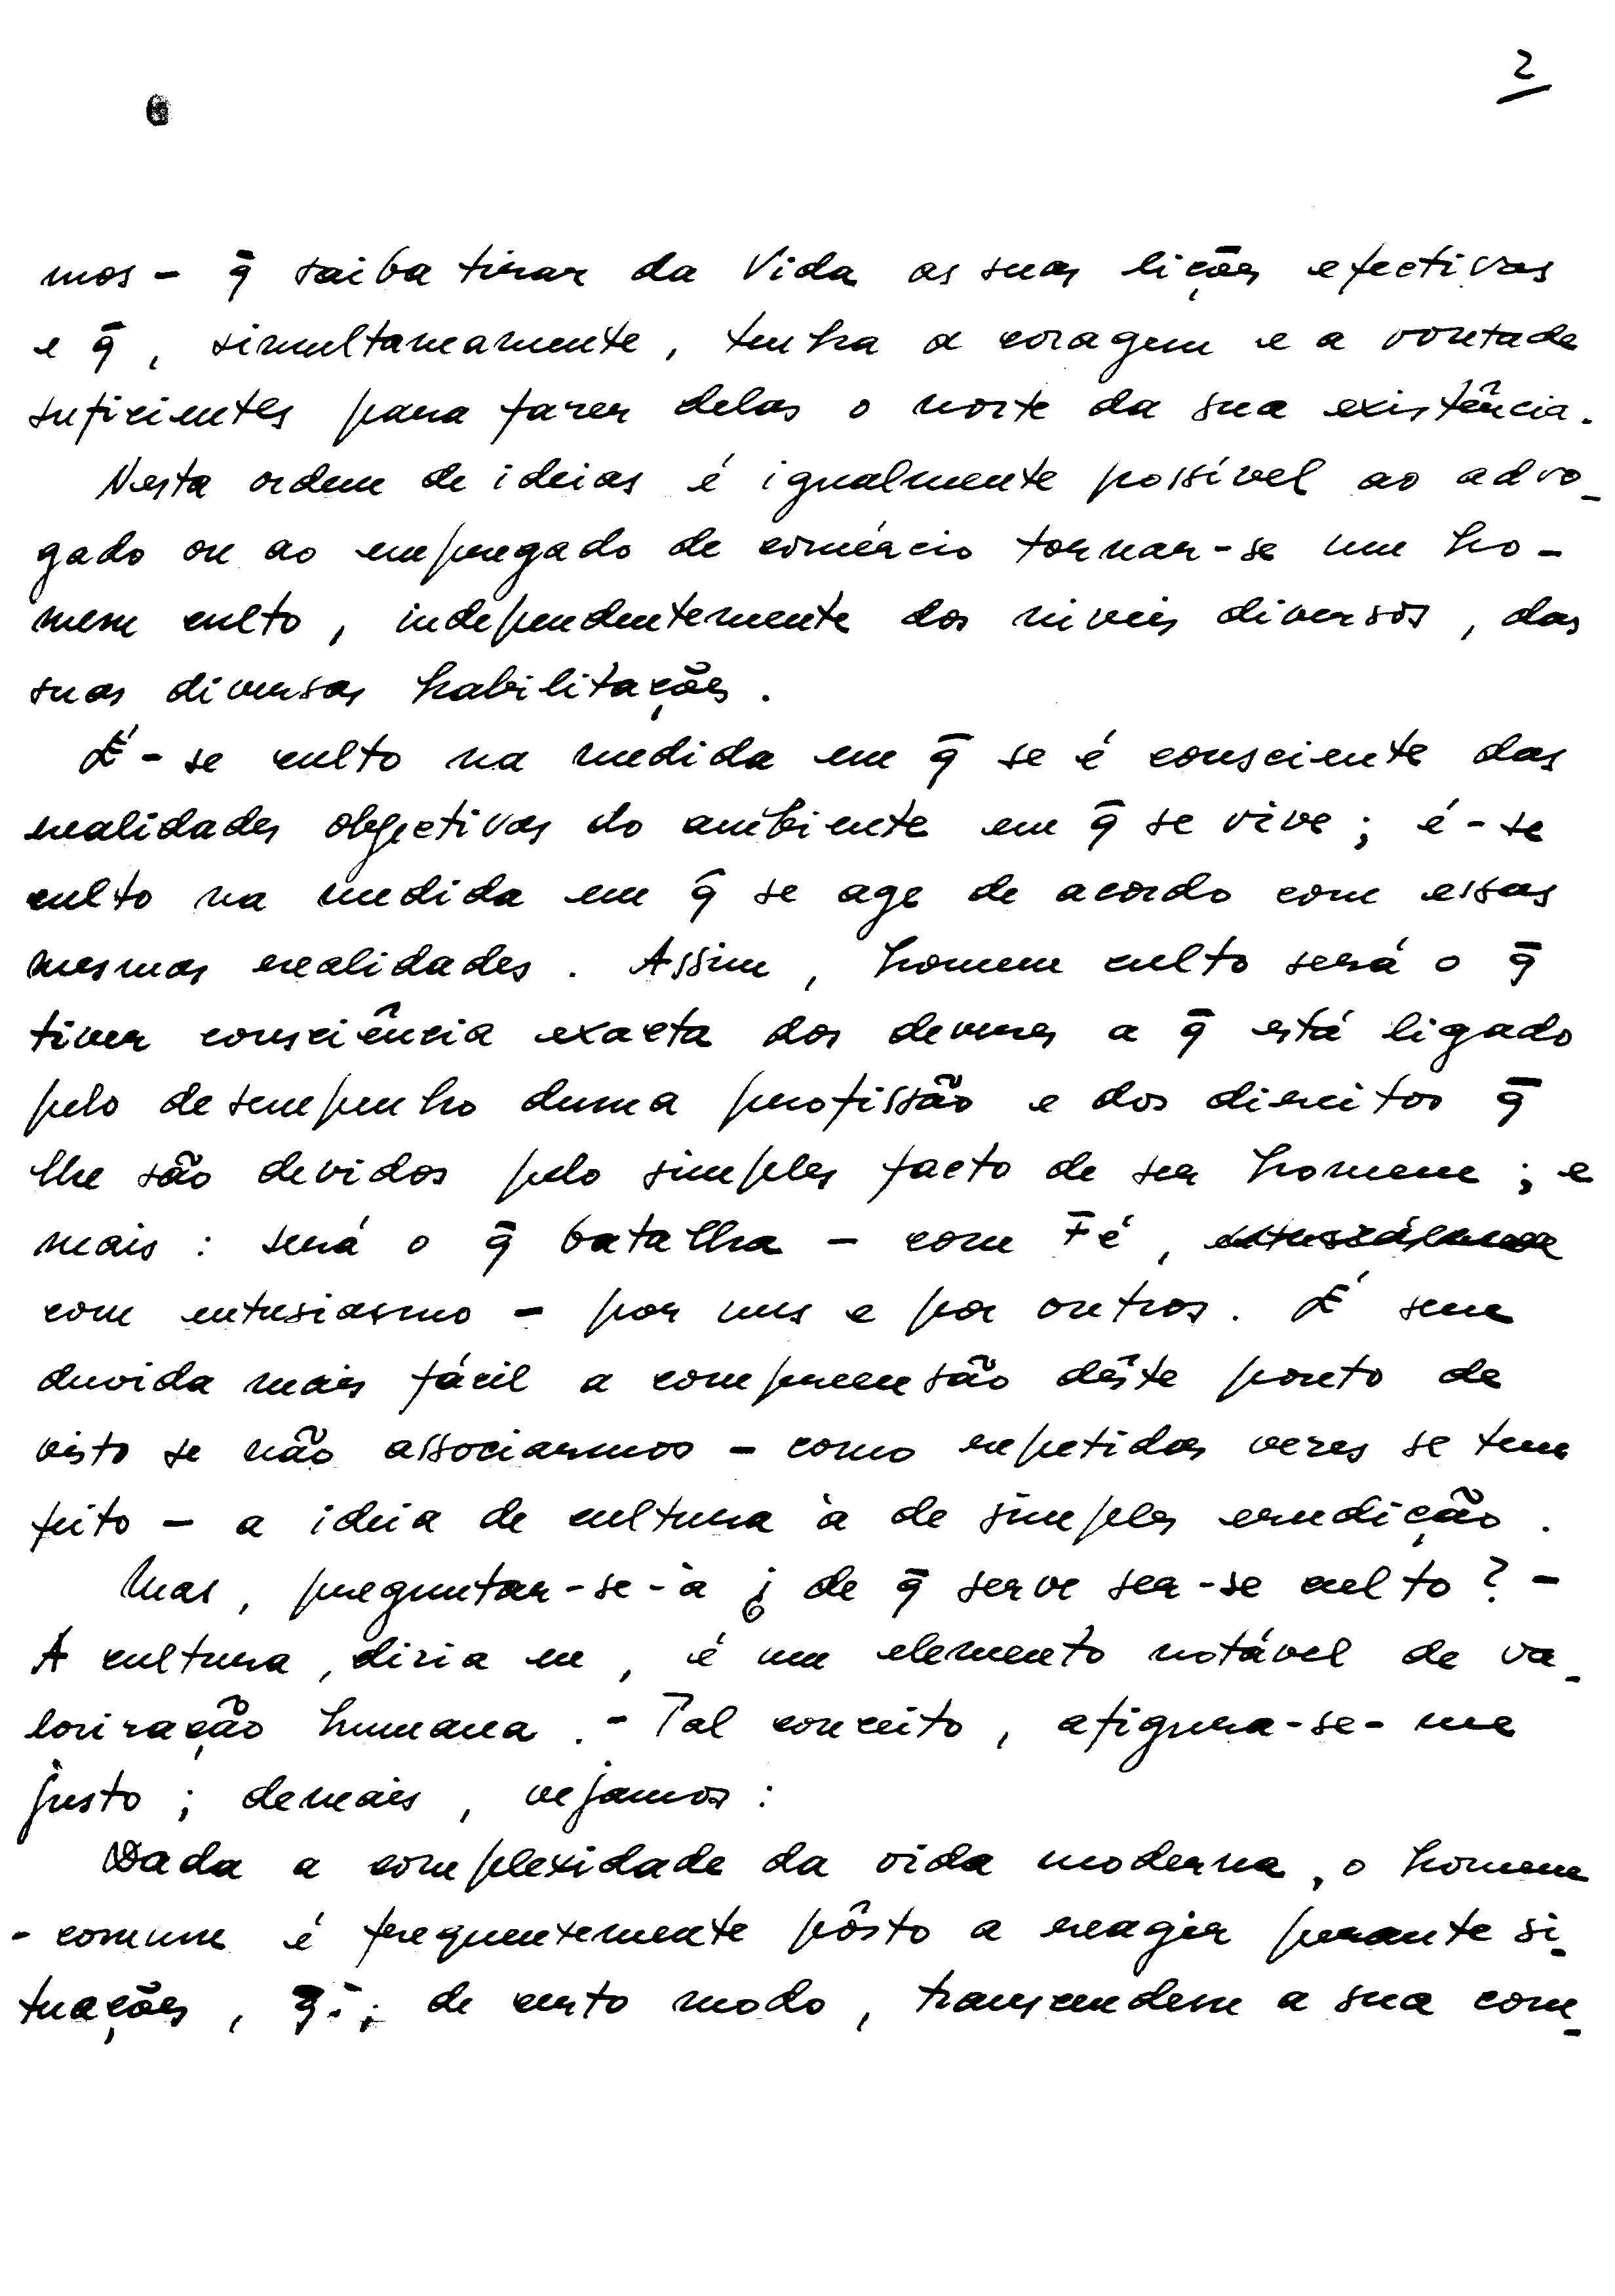 2
mos - q̄ saiba tirar da Vida as suas lições efectivas
e q̄, simultaneamente, tenha a coragem e a vontade
suficientes para fazer delas o norte da sua existência.
Nesta ordem de ideias é igualmente possível ao advo-
gado ou ao empregado de comércio tornar-se um ho-
mem culto, independentemente dos niveis diversos, das
suas diversas habilitações.
É-se culto na medida em q̄ se é consciente das
realidades objectivas do ambiente em q̄ se vive; é-se
culto na medida em q̄ se age de acordo com essas
mesmas realidades. Assim, homem culto será o q̄
tiver consciência exacta dos deveres a q̄ está ligado
pelo desempenho duma profissão e dos direitos q̄
lhe são devidos pelo simples facto de ser homem; e
mais: será o q̄ batalha - com Fé,
com entusiasmo - por uns e por outros. É sem
duvida mais fácil a compreensão dêste ponto de
visto se não associarmos - como repetidas vezes se tem
feito - a ideia de cultura à de simples erudição.
Mas, preguntar-se-à ¿ de q̄ serve ser-se culto? -
A cultura, diria eu, é um elemento notável de va-
lorização humana. - Tal conceito, afigura-se-me
justo; demais, vejamos:
Dada a complexidade da vida moderna, o homem
- comum é frequentemente pôsto a reagir perante si-
tuações, q̄, de certo modo, transcendem a sua com-